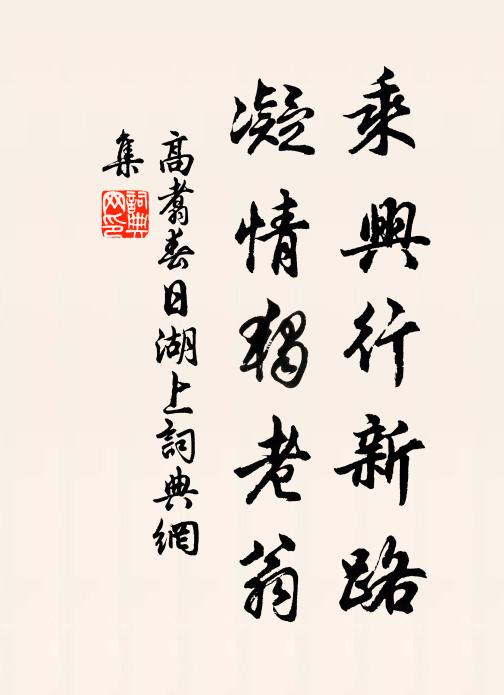 乘興行新路
凝情獨老翁
高翥春日湖上詞典網
集
詞典網印